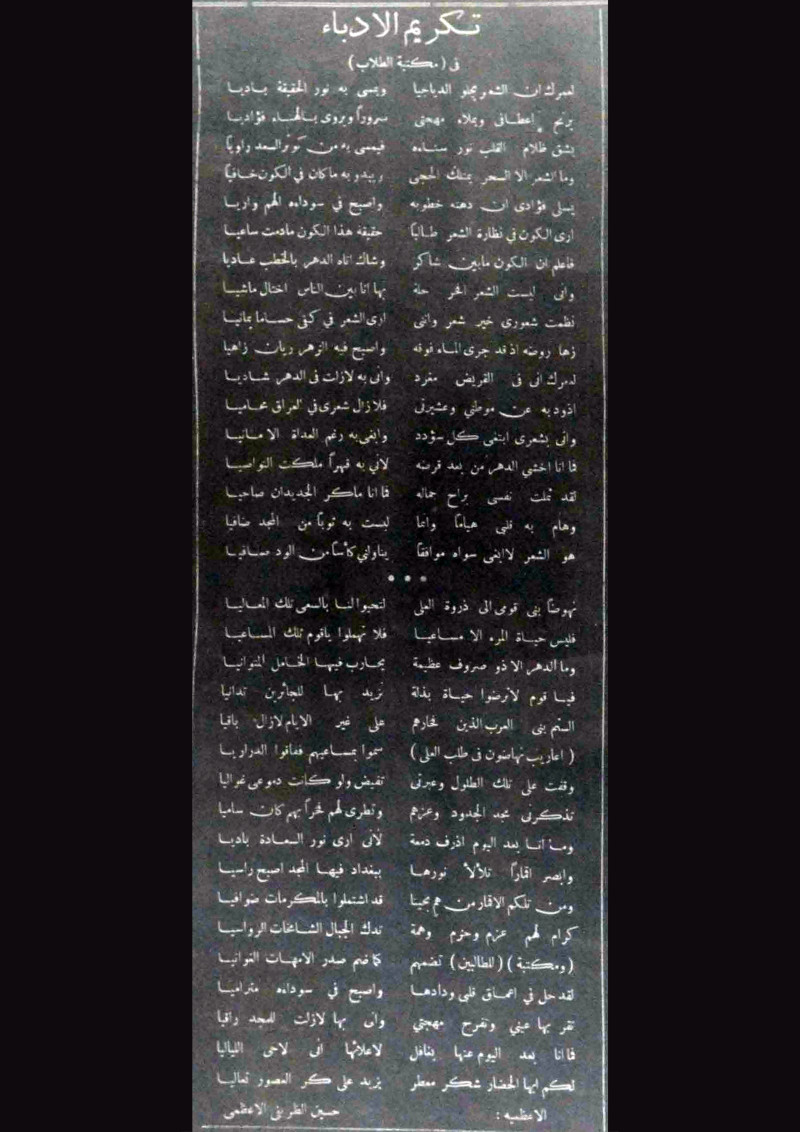 تكريم الادباء
في (مكتبة الطلاب)
لعمرك ان الشعر يجلو الدياجيا ويمسى به نور الحقيقة باديا
يرنح اعطافى ويملاء مهجتى سروراً ويروى بالهناء فؤاديا
يشق ظلام القلب نور سناءه فيمسى به من كوثر السعد راويا
وما الشعر الا السحر يمتلك الحجى ويبدو به ماكان في الكون خافيا
يسلى فؤادى ان دهته خطوبه واصبح في سوداءه الهم واريا
ارى الكون في نظارة الشعر طالباً حقيقة هذا الكون مادمت ساعيا
فاعلم ان الكون مابين شاكر وشاك اتاه الدهر بالخطب عاديا
وانى لبست الشعر الحر حلة بها انا بين الناس اختال ماشيا
نظمت شعورى خير شعر واننى ارى الشعر في كفى حساما يمانيا
زها روضه اذ قد جرى الماء فوقه واصبح فيه الزهر ريان زاهيا
لعمرك انى فى القريض مغرد وانى به لازلت فى الدهر شاديا
اذود به عن موطني وعشيرتى فلا زال شعرى في العراق محاميا
وانى بشعرى ابتغى كل سؤدد وابغى به رغم العداة الامانيا
فما انا اخشي الدهر من بعد قرضه لأني به قهراً ملكت النواصيا
لقد ثملت نفسى براح جماله فما انا ماكر الجديدان صاحيا
وهام به قلبي هياماً وانما لبست به ثوباً من المجد ضافيا
هو الشعر لاابغى سواه موافقاً يناولني كأساً من الود صافيا
• • •
نهوضاً بنى قومى الى ذروة العلى لتحيوا لنا بالسعى تلك المعاليا
فليس حياة المرء الا مساعيا فلا تهملوا ياقوم تلك المساعيا
وما الدهر الا ذو صروف عظيمة يحارب فيها الخامل المتوانيا
فيا قوم لاترضوا حياة بذلة تزيد بها للجائرين تدانيا
الستم بنى العرب الذين فخارهم على غير الايام لازال باقيا
(اعاريب نهاضون فى طلب العلى) سموا بمساعيهم ففاقوا الدراريا
وقفت على تلك الطلول وعبرتى تفيض ولو كانت دموعى غواليا
تذكرنى مجد الجدود وعزهم وتطرى لهم فخراً بهم كان ساميا
وما انا بعد اليوم اذرف دمعة لأنى ارى نور السعادة باديا
وابصر اقماراً تلألأ نورها ببغداد فيها المجد اصبح راسيا
ومن تلكم الاقمار من هم بحينا قد اشتملوا بالمكرمات ضوافيا
كرام لهم عزم وحزم وهمة تدك الجبال الشامخات الرواسيا
(ومكتبة) (للطالبين) تضمهم كما ضم صدر الامهات الغوانيا
لقد حل في اعماق قلبي ودادها واصبح في سوداءه متراميا
تقر بها عيني وتفرح مهجتي وان بها لازلت للمجد راقيا
فما انا بعد اليوم عنها بغافل لاعلائها افى لاحى اللياليا
لكم ايها الحضار شكر معطر يزيد على كر العصور تعاليا
الاعظمية: حسين الظريفى الاعظمى